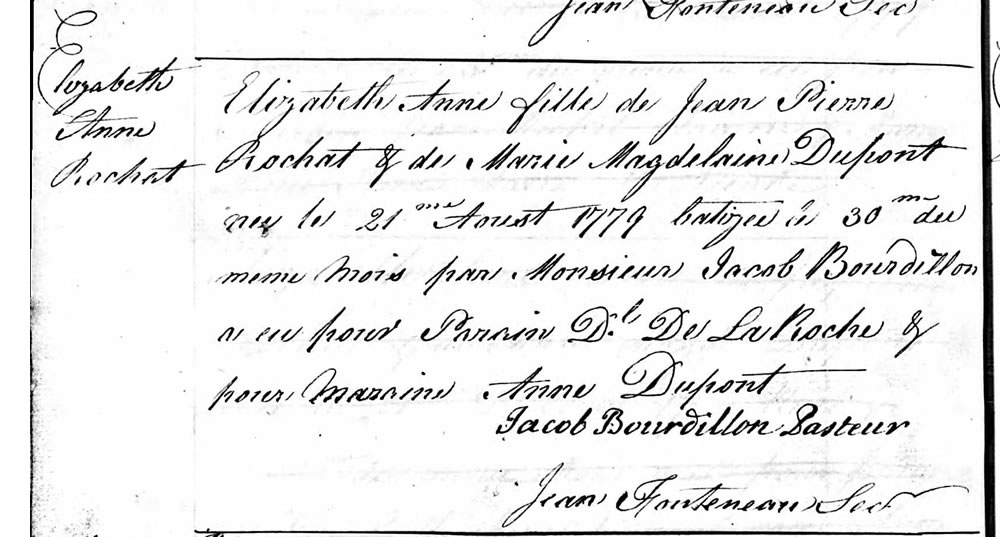 Jean Fonteneau Sec
Elizabeth
Anne
Rochat
Elizabeth Anne fille de Jean Pierre
Rochat & de Marie Magdelaine Dupont
nee le 21 me Aoust 1779 batizee le 30 m du
meme Mois par Monsieur Jacob Bourdillon
a eu pour Parain D.l De La Roche &
pour Maraine Anne Dupont
Jacob Bourdillon Pasteur
Jean Fonteneau Sec